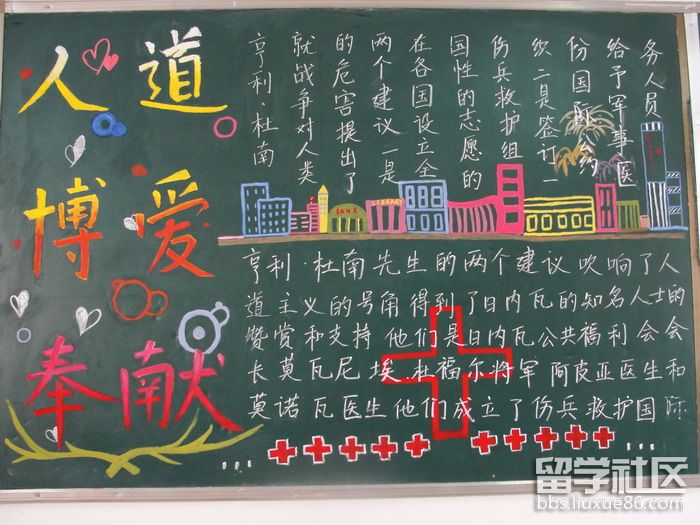 人道
博爱
奉献
亨利·杜南
就战争对人类
的危害提出了
两个建议一是
在各国设立全
国性的志愿的
伤兵救护组
织二是签订一
份国际公约
给予军事医
务人员
BANK
LIBRARY
亨利·杜南先生的两个建议吹响了人
道主义的号角得到了日内瓦的知名人士的
赞赏和支持 他们是日内瓦公共福利会会
长莫瓦尼埃 杜福尔将军 阿皮亚医生和
莫诺瓦医生他们成立了伤兵救护国际
... ...
留学社区
bbs.liuxue86.com